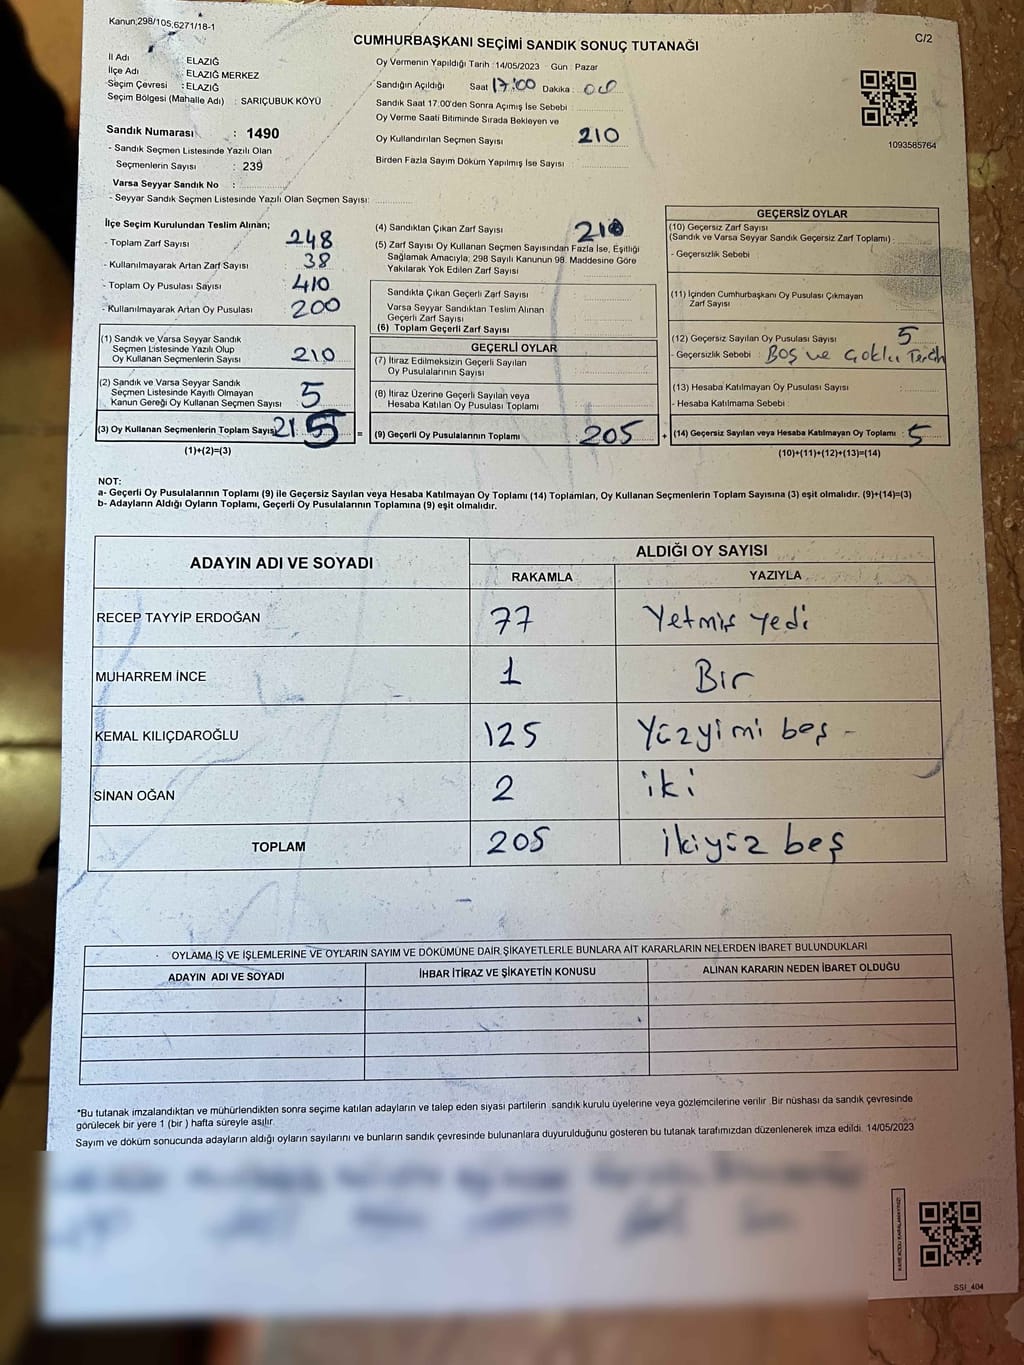 Kanun,298/105,6271/18-1
C/2
CUMHURBAŞKANI SEÇİMİ SANDIK SONUÇ TUTANAĞI
İl Adı : ELAZIĞ
İlçe Adı : ELAZIĞ MERKEZ
Seçim Çevresi : ELAZIĞ
Seçim Bölgesi (Mahalle Adı) : SARIÇUBUK KÖYÜ
Sandık Numarası : 1490
- Sandık Seçmen Listesinde Yazılı Olan
Seçmenlerin Sayısı : 239
Varsa Seyyar Sandık No :
- Seyyar Sandık Seçmen Listesinde Yazılı Olan Seçmen Sayısı:
Oy Vermenin Yapıldığı Tarih :14/05/2023 Gün : Pazar
Sandığın Açıldığı Saat 17:00 Dakika :
Sandık Saat 17.00'den Sonra Açımış İse Sebebi :
Oy Verme Saati Bitiminde Sırada Bekleyen ve
Oy Kullandırılan Seçmen Sayısı : 210
Birden Fazla Sayım Döküm Yapılmış İse Sayısı :
1093585764
İlçe Seçim Kurulundan Teslim Alınan;
- Toplam Zarf Sayısı : 248
- Kullanılmayarak Artan Zarf Sayısı : 38
- Toplam Oy Pusulası Sayısı : 410
- Kullanılmayarak Artan Oy Pusulası : 200
(1) Sandık ve Varsa Seyyar Sandık
Seçmen Listesinde Yazılı Olup
Oy Kullanan Seçmenlerin Sayısı 210
(2) Sandık ve Varsa Seyyar Sandık
Seçmen Listesinde Kayıtlı Olmayan
Kanun Gereği Oy Kullanan Seçmen Sayısı 5
(3) Oy Kullanan Seçmenlerin Toplam Sayısı 215
(1)+(2)=(3)
(4) Sandıktan Çıkan Zarf Sayısı 210
(5) Zarf Sayısı Oy Kullanan Seçmen Sayısından Fazla İse, Eşitliği
Sağlamak Amacıyla; 298 Sayılı Kanunun 98. Maddesine Göre
Yakılarak Yok Edilen Zarf Sayısı
Sandıkta Çıkan Geçerli Zarf Sayısı
Varsa Seyyar Sandıktan Teslim Alınan
Geçerli Zarf Sayısı
(6) Toplam Geçerli Zarf Sayısı
GEÇERLİ OYLAR
(7) İtiraz Edilmeksizin Geçerli Sayılan
Oy Pusulalarının Sayısı
(8) İtiraz Üzerine Geçerli Sayılan veya
Hesaba Katılan Oy Pusulası Toplamı
= (9) Geçerli Oy Pusulalarının Toplamı 205
GEÇERSİZ OYLAR
(10) Geçersiz Zarf Sayısı
(Sandık ve Varsa Seyyar Sandık Geçersiz Zarf Toplamı) :
- Geçersizlik Sebebi :
(11) İçinden Cumhurbaşkanı Oy Pusulası Çıkmayan
Zarf Sayısı
(12) Geçersiz Sayılan Oy Pusulası Sayısı : 5
- Geçersizlik Sebebi : Boş ve
(13) Hesaba Katılmayan Oy Pusulası Sayısı
- Hesaba Katılmama Sebebi :
+ (14) Geçersiz Sayılan veya Hesaba Katılmayan Oy Toplamı : 5
(10)+(11)+(12)+(13)=(14)
NOT:
a- Geçerli Oy Pusulalarının Toplamı (9) ile Geçersiz Sayılan veya Hesaba Katılmayan Oy Toplamı (14) Toplamları, Oy Kullanan Seçmenlerin Toplam Sayısına (3) eşit olmalıdır. (9)+(14)=(3)
b- Adayların Aldığı Oyların Toplamı, Geçerli Oy Pusulalarının Toplamına (9) eşit olmalıdır.
ADAYIN ADI VE SOYADI
ALDIĞI OY SAYISI
RAKAMLA YAZIYLA
RECEP TAYYİP ERDOĞAN 77 Yetmiş Yedi
MUHARREM İNCE 1 Bir
KEMAL KILIÇDAROĞLU 125 Yüzyimi beş -
SİNAN OĞAN 2 iki
TOPLAM 205 ikiyüz beş
OYLAMA İŞ VE İŞLEMLERİNE VE OYLARIN SAYIM VE DÖKÜMÜNE DAİR ŞİKAYETLERLE BUNLARA AİT KARARLARIN NELERDEN İBARET BULUNDUKLARI
ADAYIN ADI VE SOYADI İHBAR İTİRAZ VE ŞİKAYETİN KONUSU ALINAN KARARIN NEDEN İBARET OLDUĞU
*Bu tutanak imzalandıktan ve mühürlendikten sonra seçime katılan adayların ve talep eden siyasi partilerin sandık kurulu üyelerine veya gözlemcilerine verilir .Bir nüshası da sandık çevresinde
görülecek bir yere 1 (bir ) hafta süreyle asılır.
Sayım ve döküm sonucunda adayların aldığı oyların sayılarını ve bunların sandık çevresinde bulunanlara duyurulduğunu gösteren bu tutanak tarafımızdan düzenlenerek imza edildi. 14/05/2023
KARE KODU KARALAMAYINIZ!
SSI_404